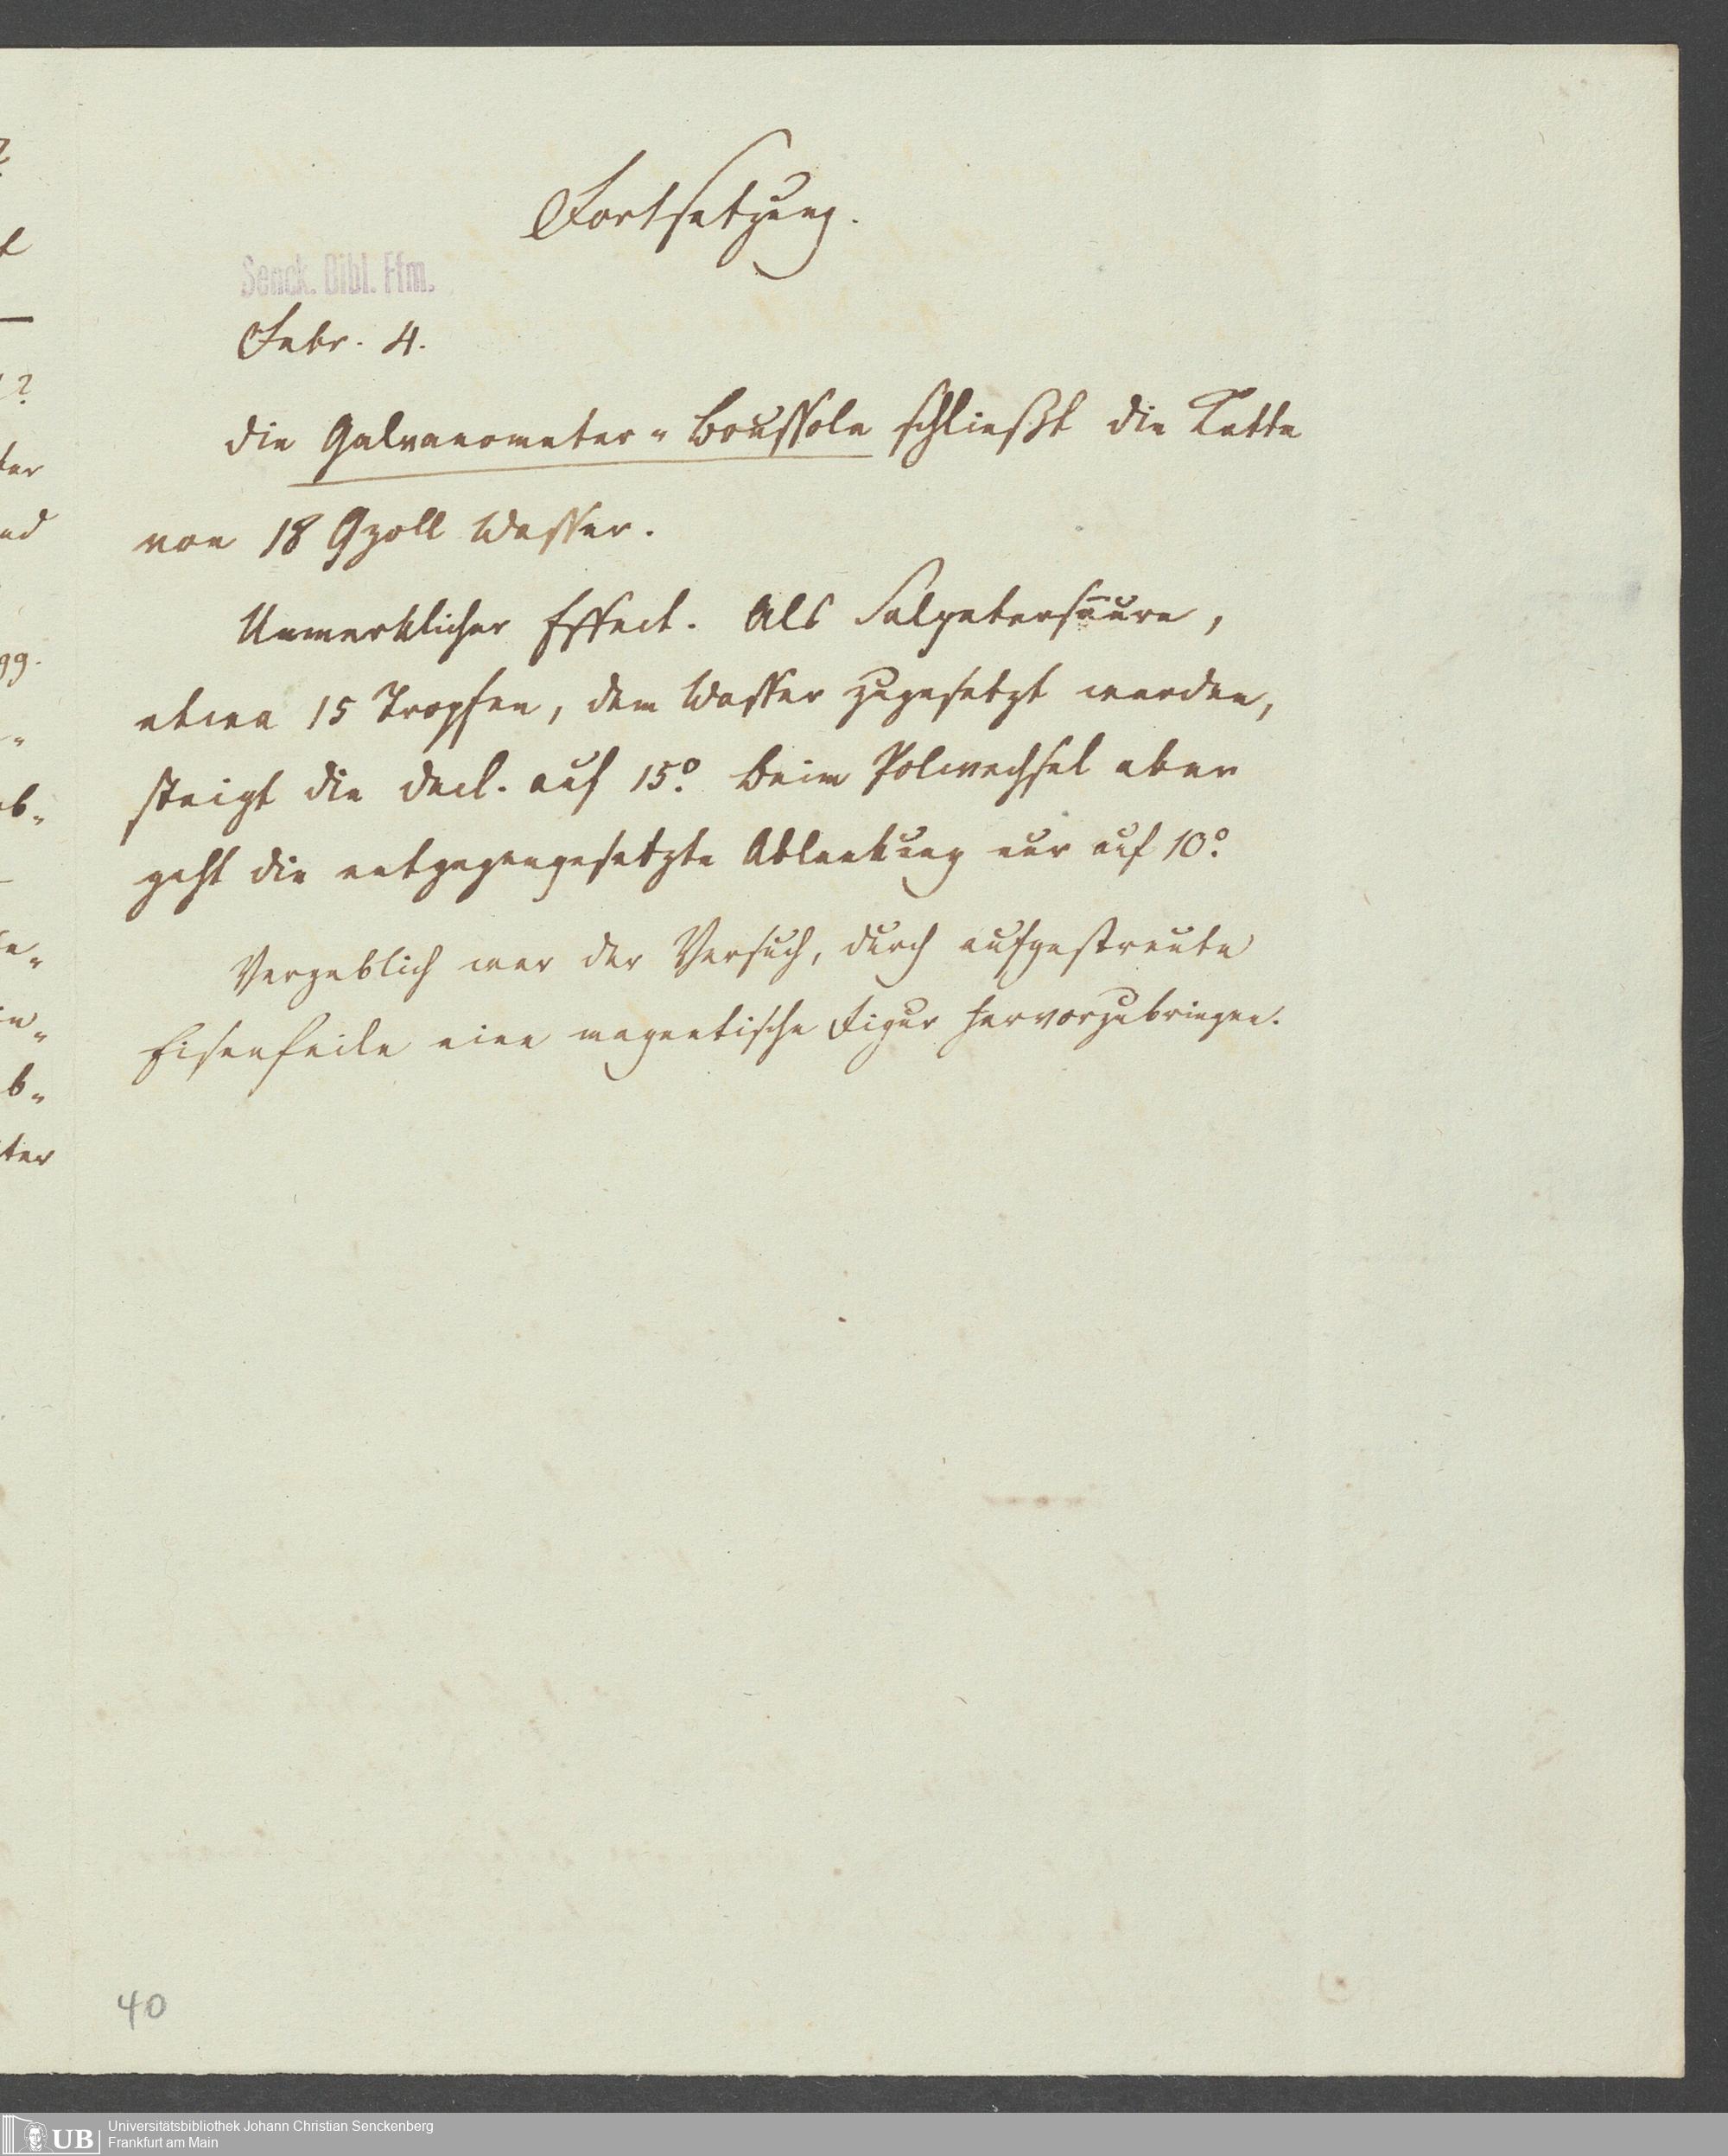 Fortsetzung.
Senck. Bibl. Ffm.
Febr. 4.
Die Galvanometer-Boussole schließt die Kette
von 18 Qzoll Wasser.
Unmerklicher Effect. Als Salpetersäure,
etwa 15 Tropfen, dem Wasser zugesetzt werden,
steigt die Decl. auf 15°. Beim Polwechsel aber
geht die entgegengesetzte Ablenkung nur auf 10°.
Vergeblich war der Versuch, durch aufgestreute
Eisenfeile eine magnetische Figur hervorzubringen.
40
UB Universitätsbibliothek Johann Christian Senckenberg
Frankfurt am Main